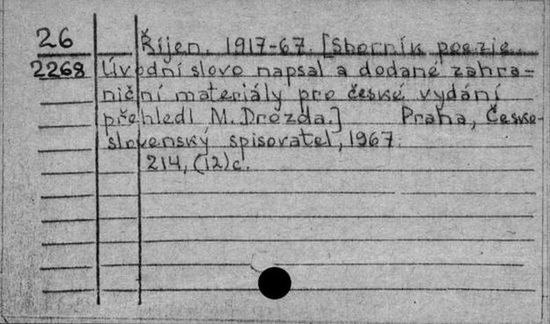 26
Říjen. 1917-67. [Sborník poezie.
2268 Úvodní slovo napsal a dodané zahra-
niční materiály pro české vydání
přehledl M. Drozda.] Praha, Česko-
slovenský spisovatel, 1967.
214, (12) c.